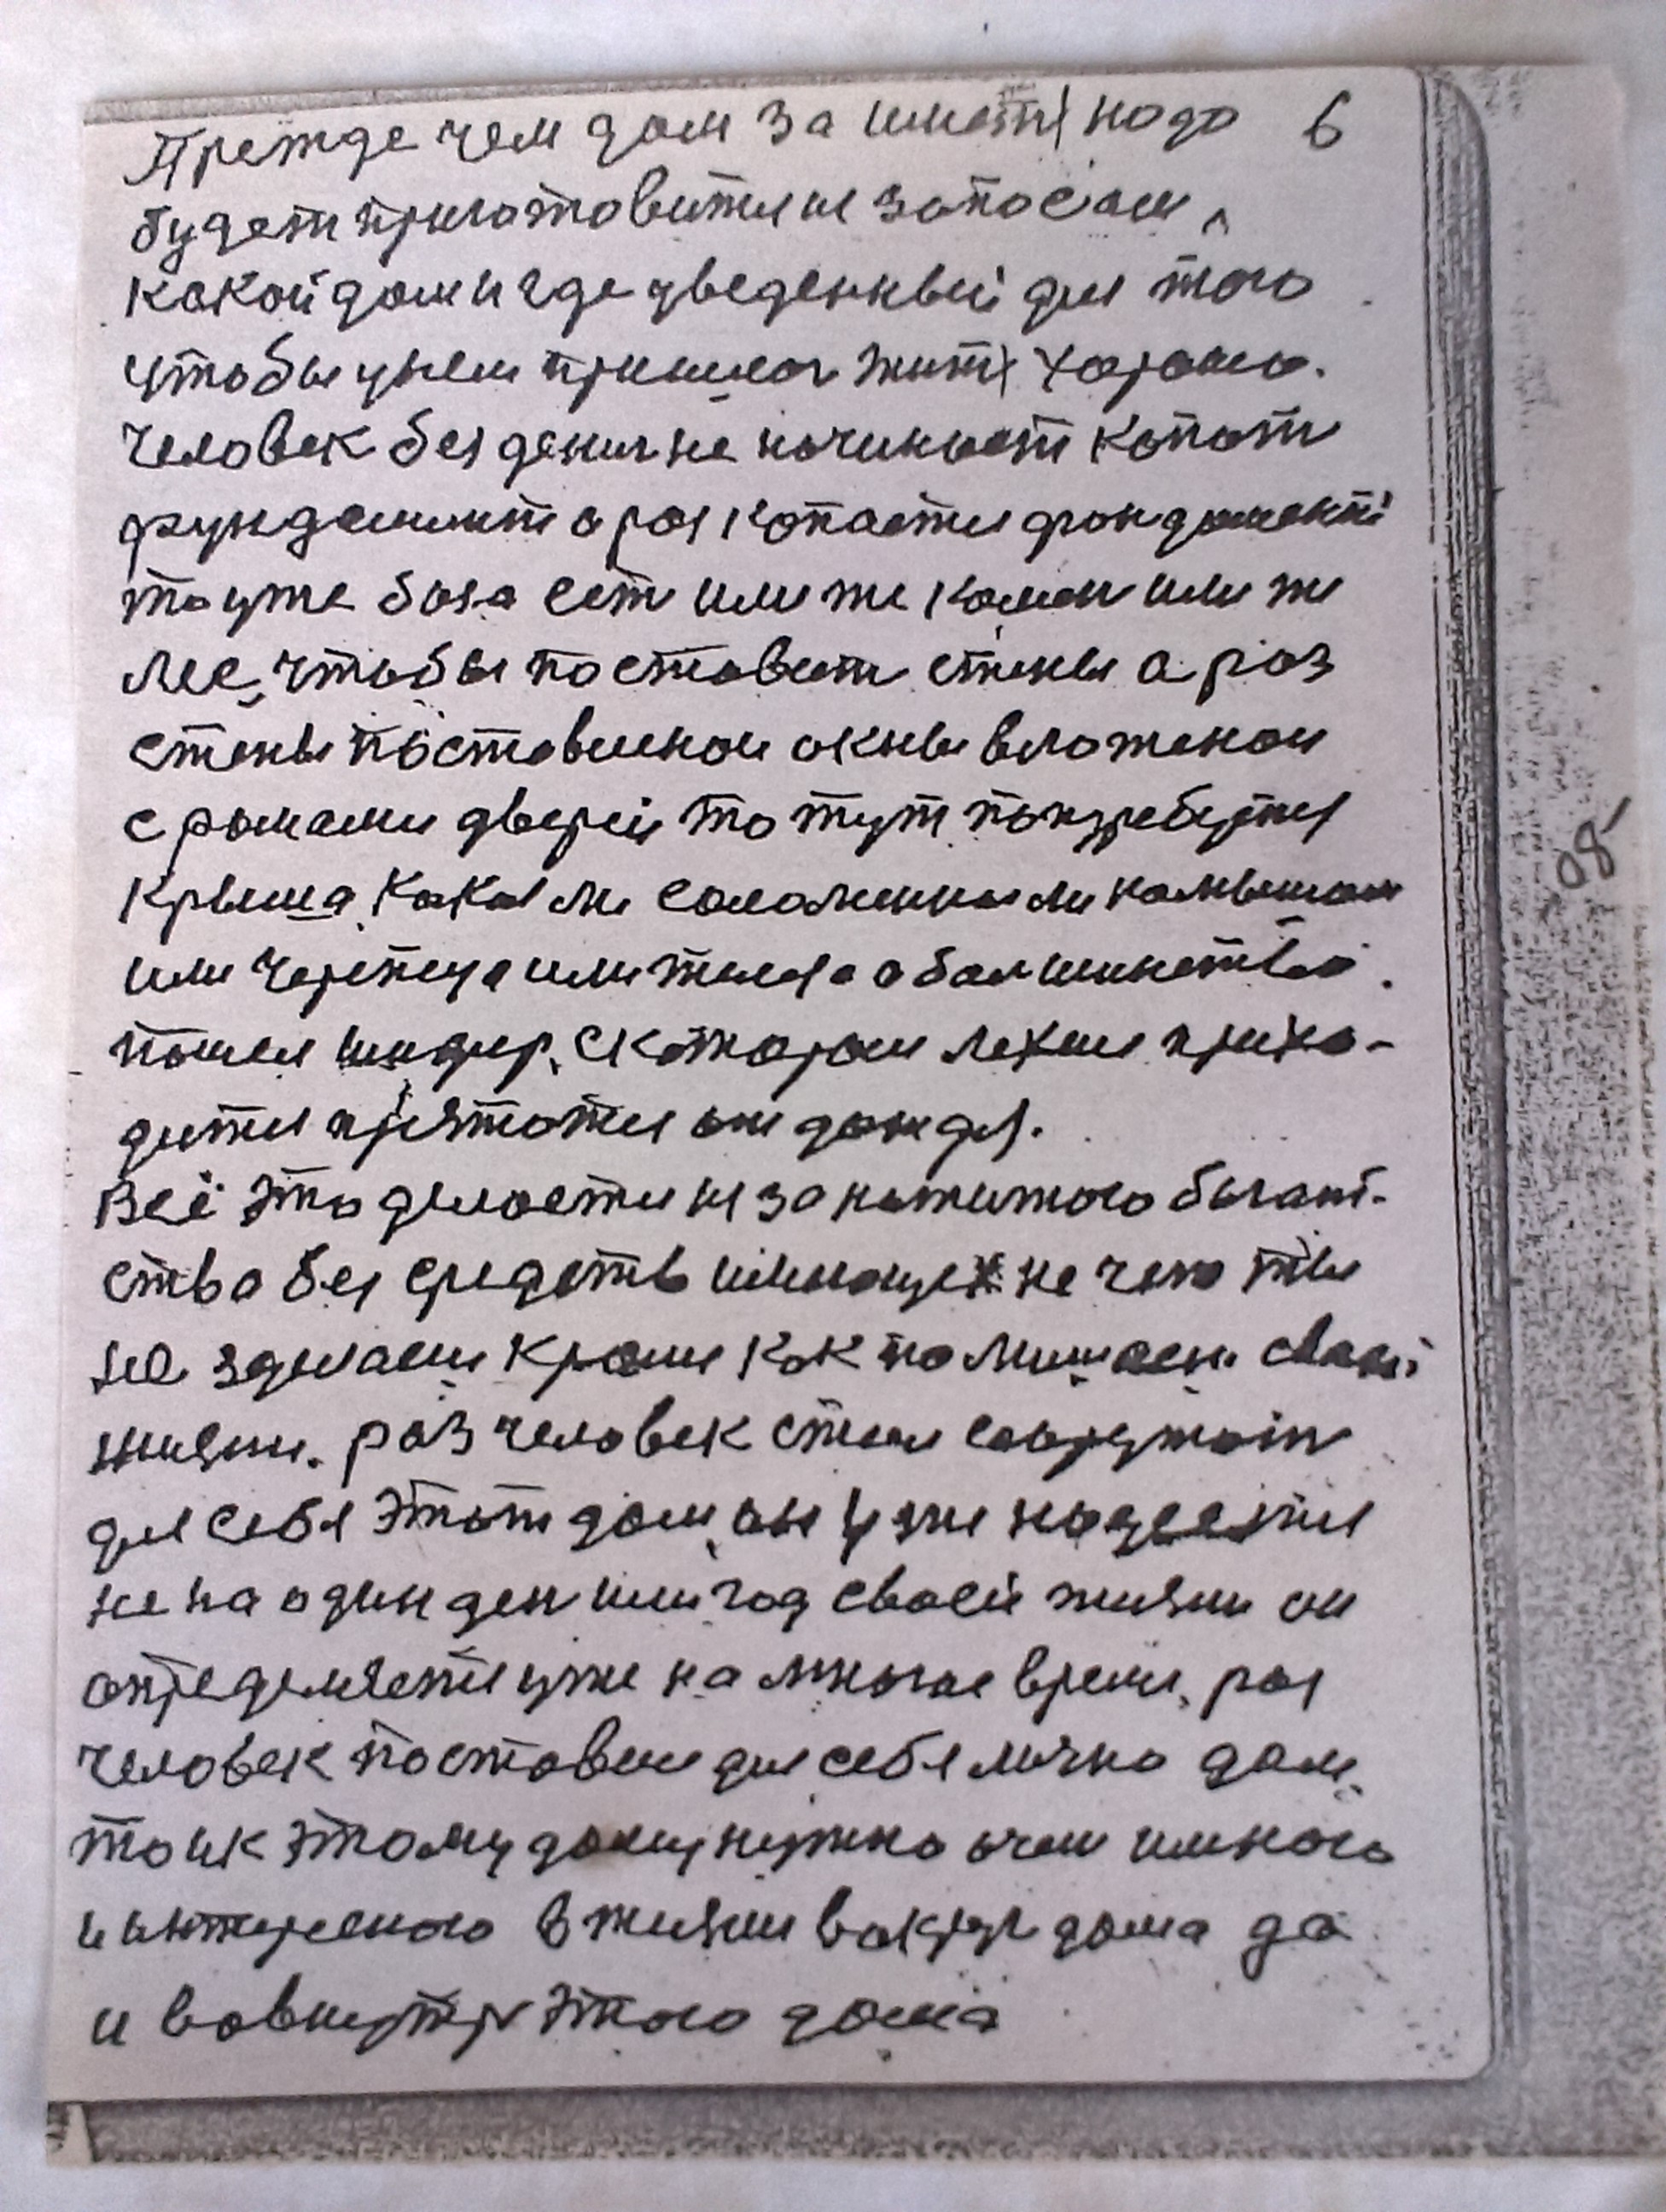 Прежде чем дом за иметь надо 6
будет приготовится запасам,
какой дом и где уведенный для того
чтобы унем пришлос жить харашо.
Человек без дениг не начинает копат
фундаминт а раз копается фондамент
то уже база ест или же камен или же
лес, чтобы поставит стены а раз
стены поставленои окны вложенои
с рамами дверей то тут попребуется
крыша какая ли саломинная ли камышом
или черепеца или железа а балшинство
пошел шифер, скоторам лехше прихо-
дится прятатся от дождя.
Всё это делается из за нажитого багат-
ства без средств имеющех не чего ты
не зделаеш кроме как помишаеш своей
жизни. раз человек стал сооружат
для себя этот дом, он уже надеется
не на один ден или год своей жизни он
определяется уже на многае время, раз
человек поставил для себя лично дом,
то и к этому дому нужно очен много
и интересного в жизни вокруг дома да
и вовнутр этого дома
08